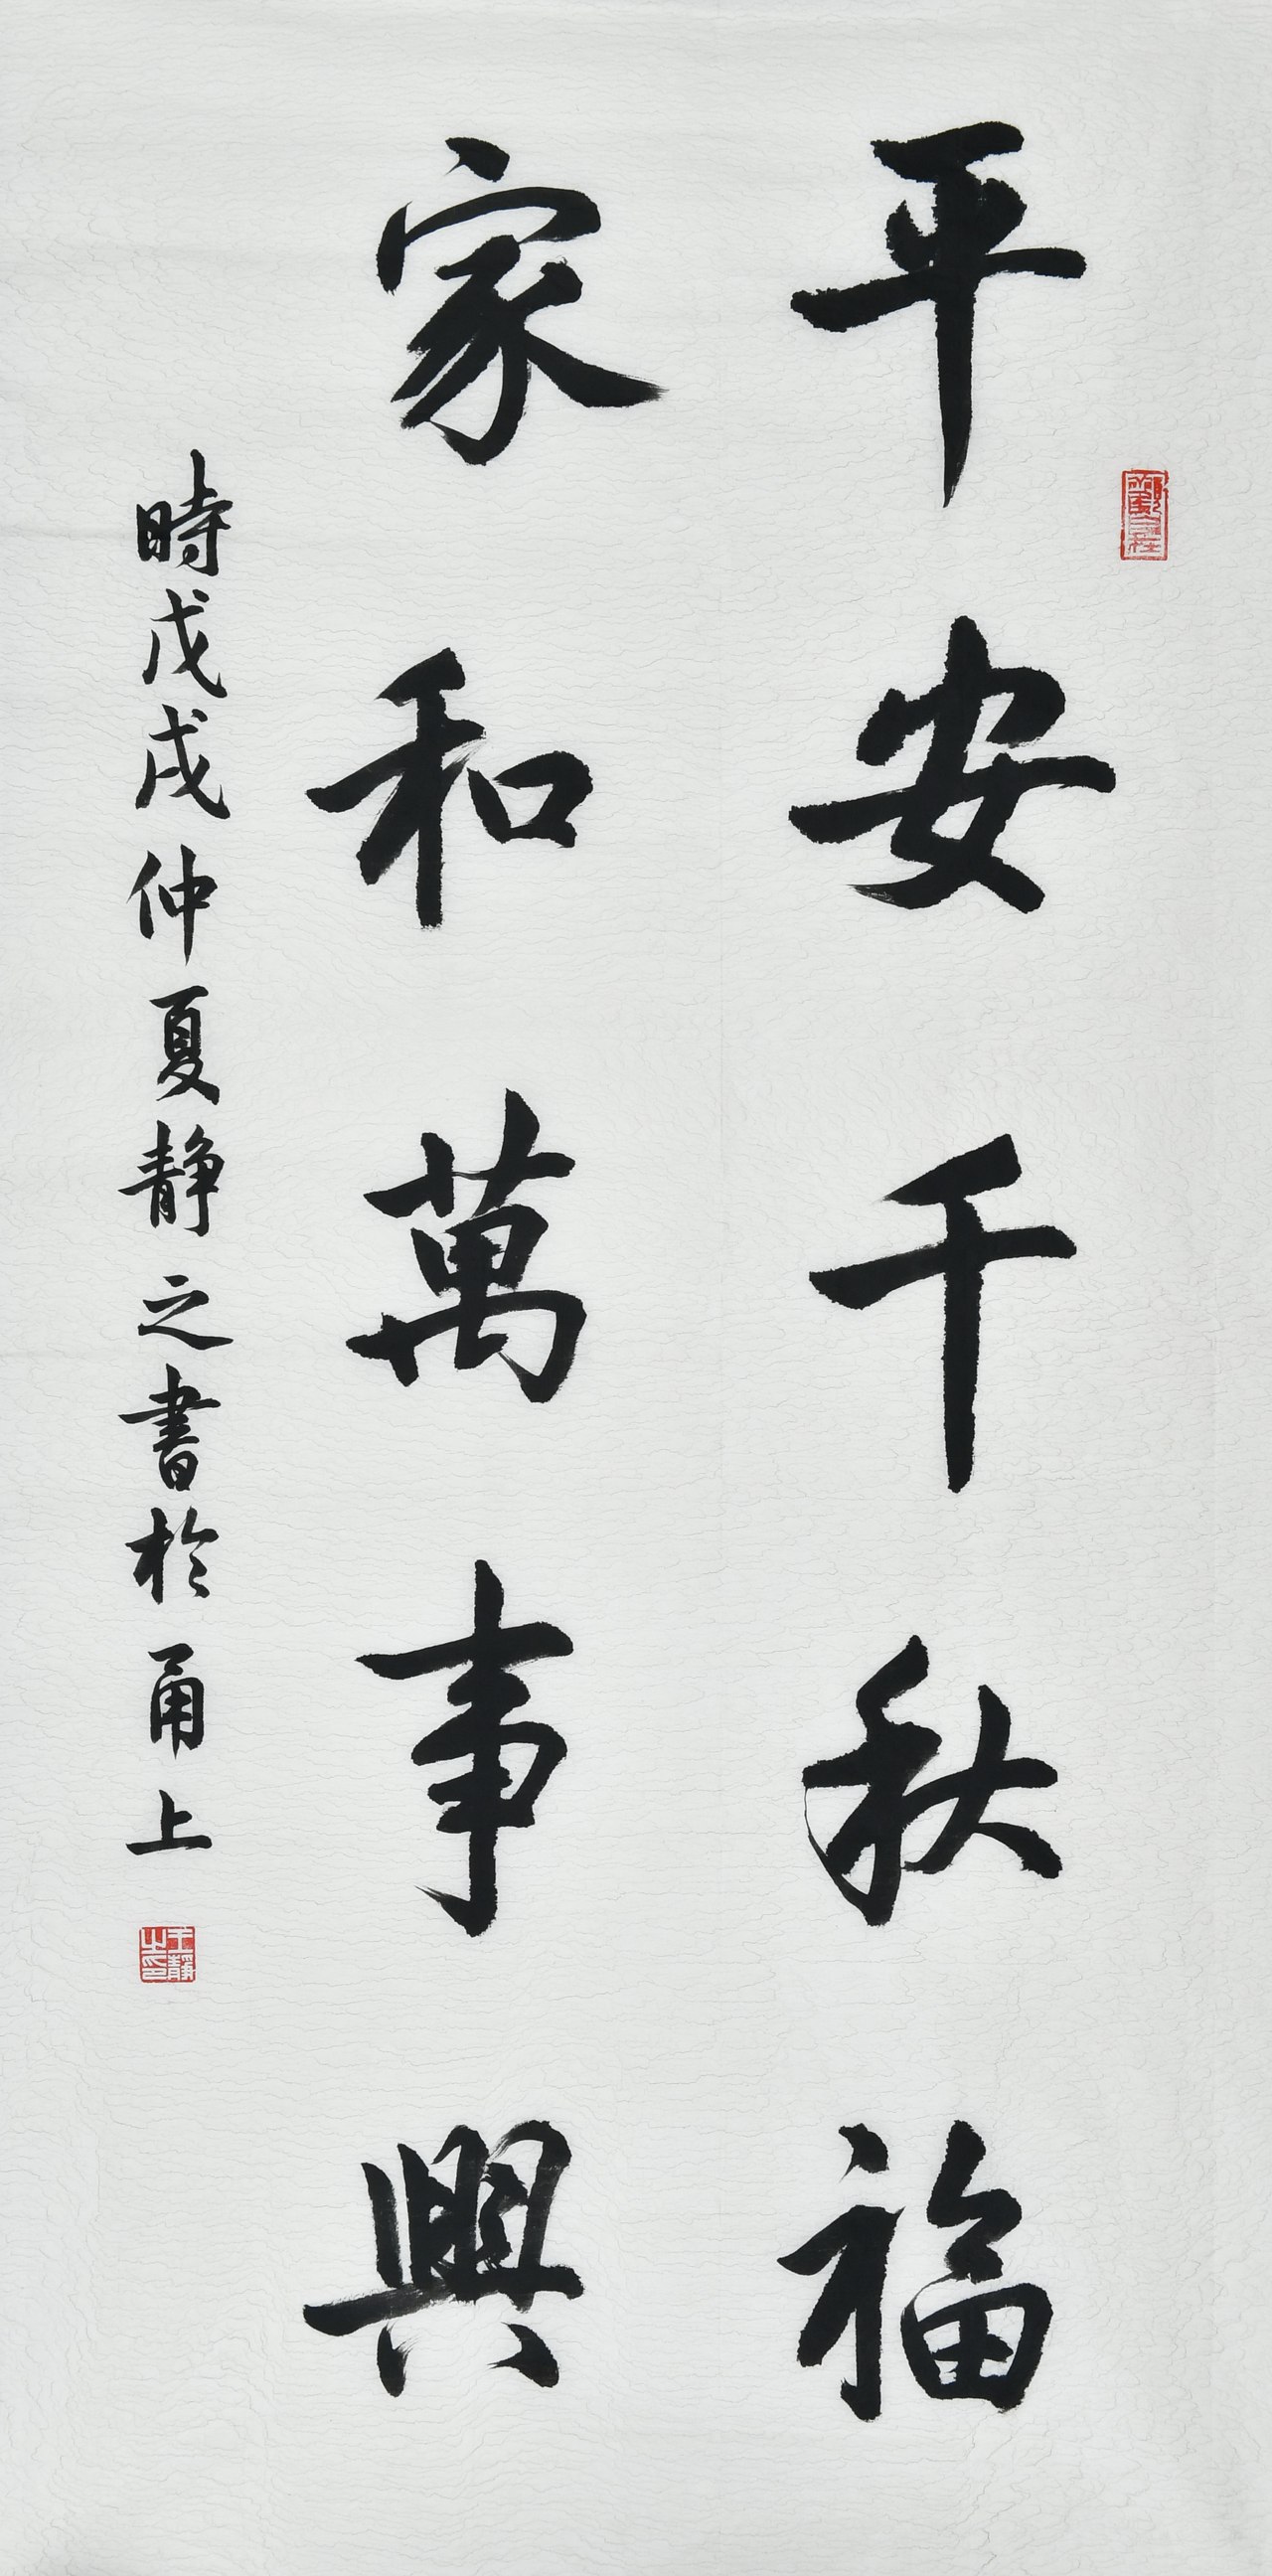 平安千秋福
家和萬事興
時戊戌仲夏静之書於甬上
王靜之印